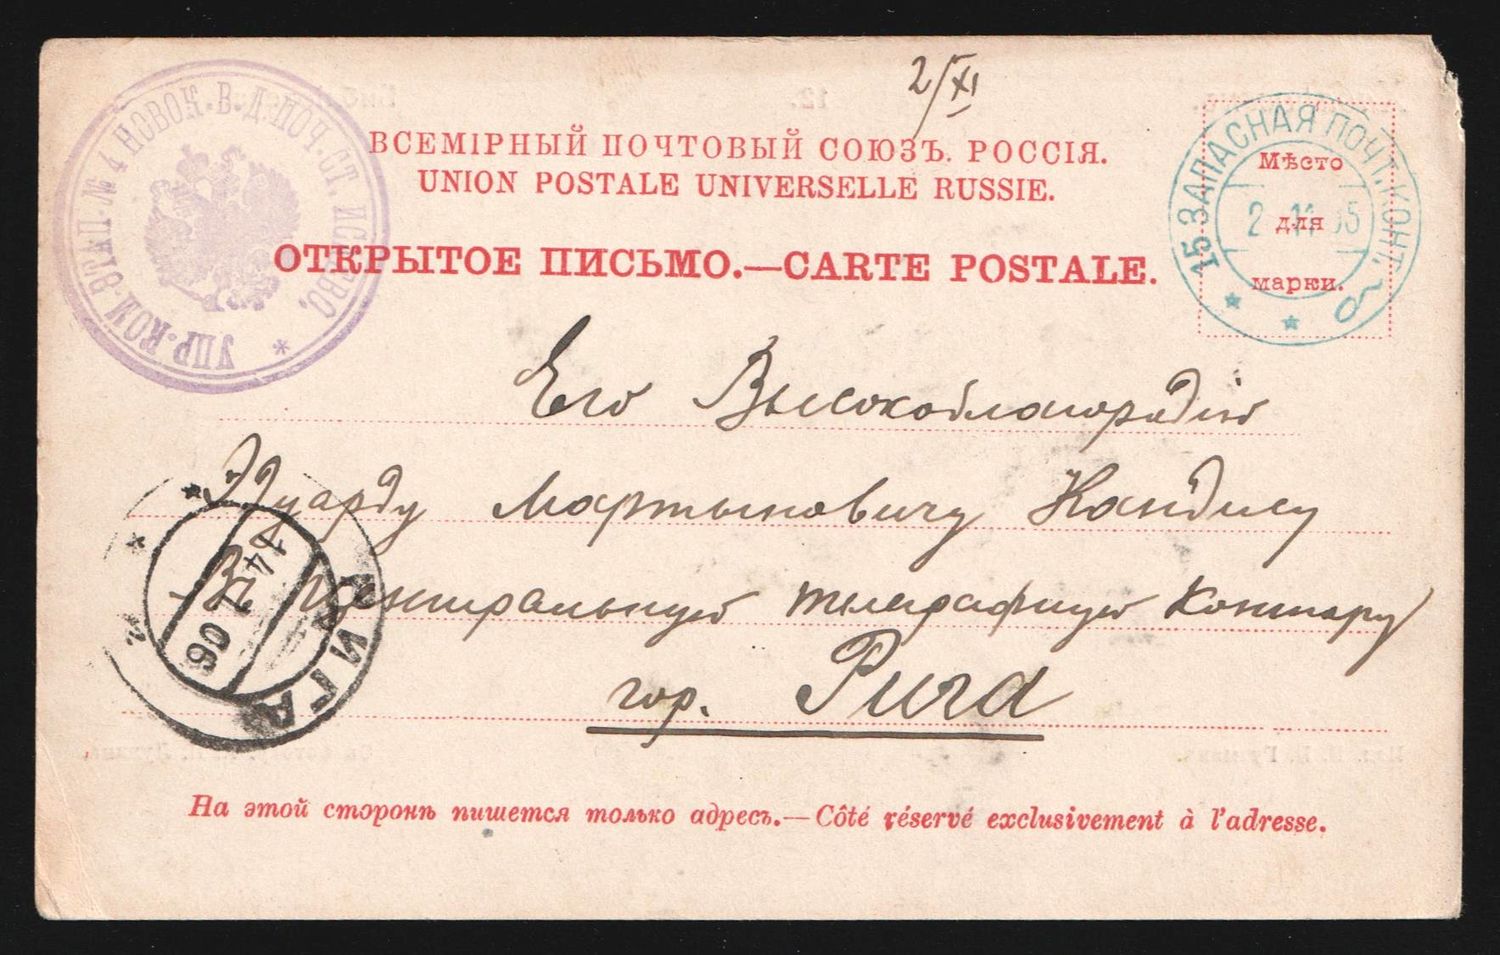 2/XI
ВСЕМІРНЫЙ ПОЧТОВЫЙ СОЮЗЪ. РОССІЯ.
UNION POSTALE UNIVERSELLE RUSSIE.
ОТКРЫТОЕ ПИСЬМО.—CARTE POSTALE.
УПР. КОМ. ЭТАП. № 4 НОВОК. В. Д. ПОЧ. СТ. *
15 ЗАПАСНАЯ ПОЧТ. КОНТ.
2 11 05
Мѣсто
для
марки.
Его Высокоблагородію
Эдуарду Мартыновичу
Въ Центральную телеграфную Контору
гор. Рига
РИГА
14 1 06
На этой сторонѣ пишется только адресъ.—Côté réservé exclusivement à l'adresse.